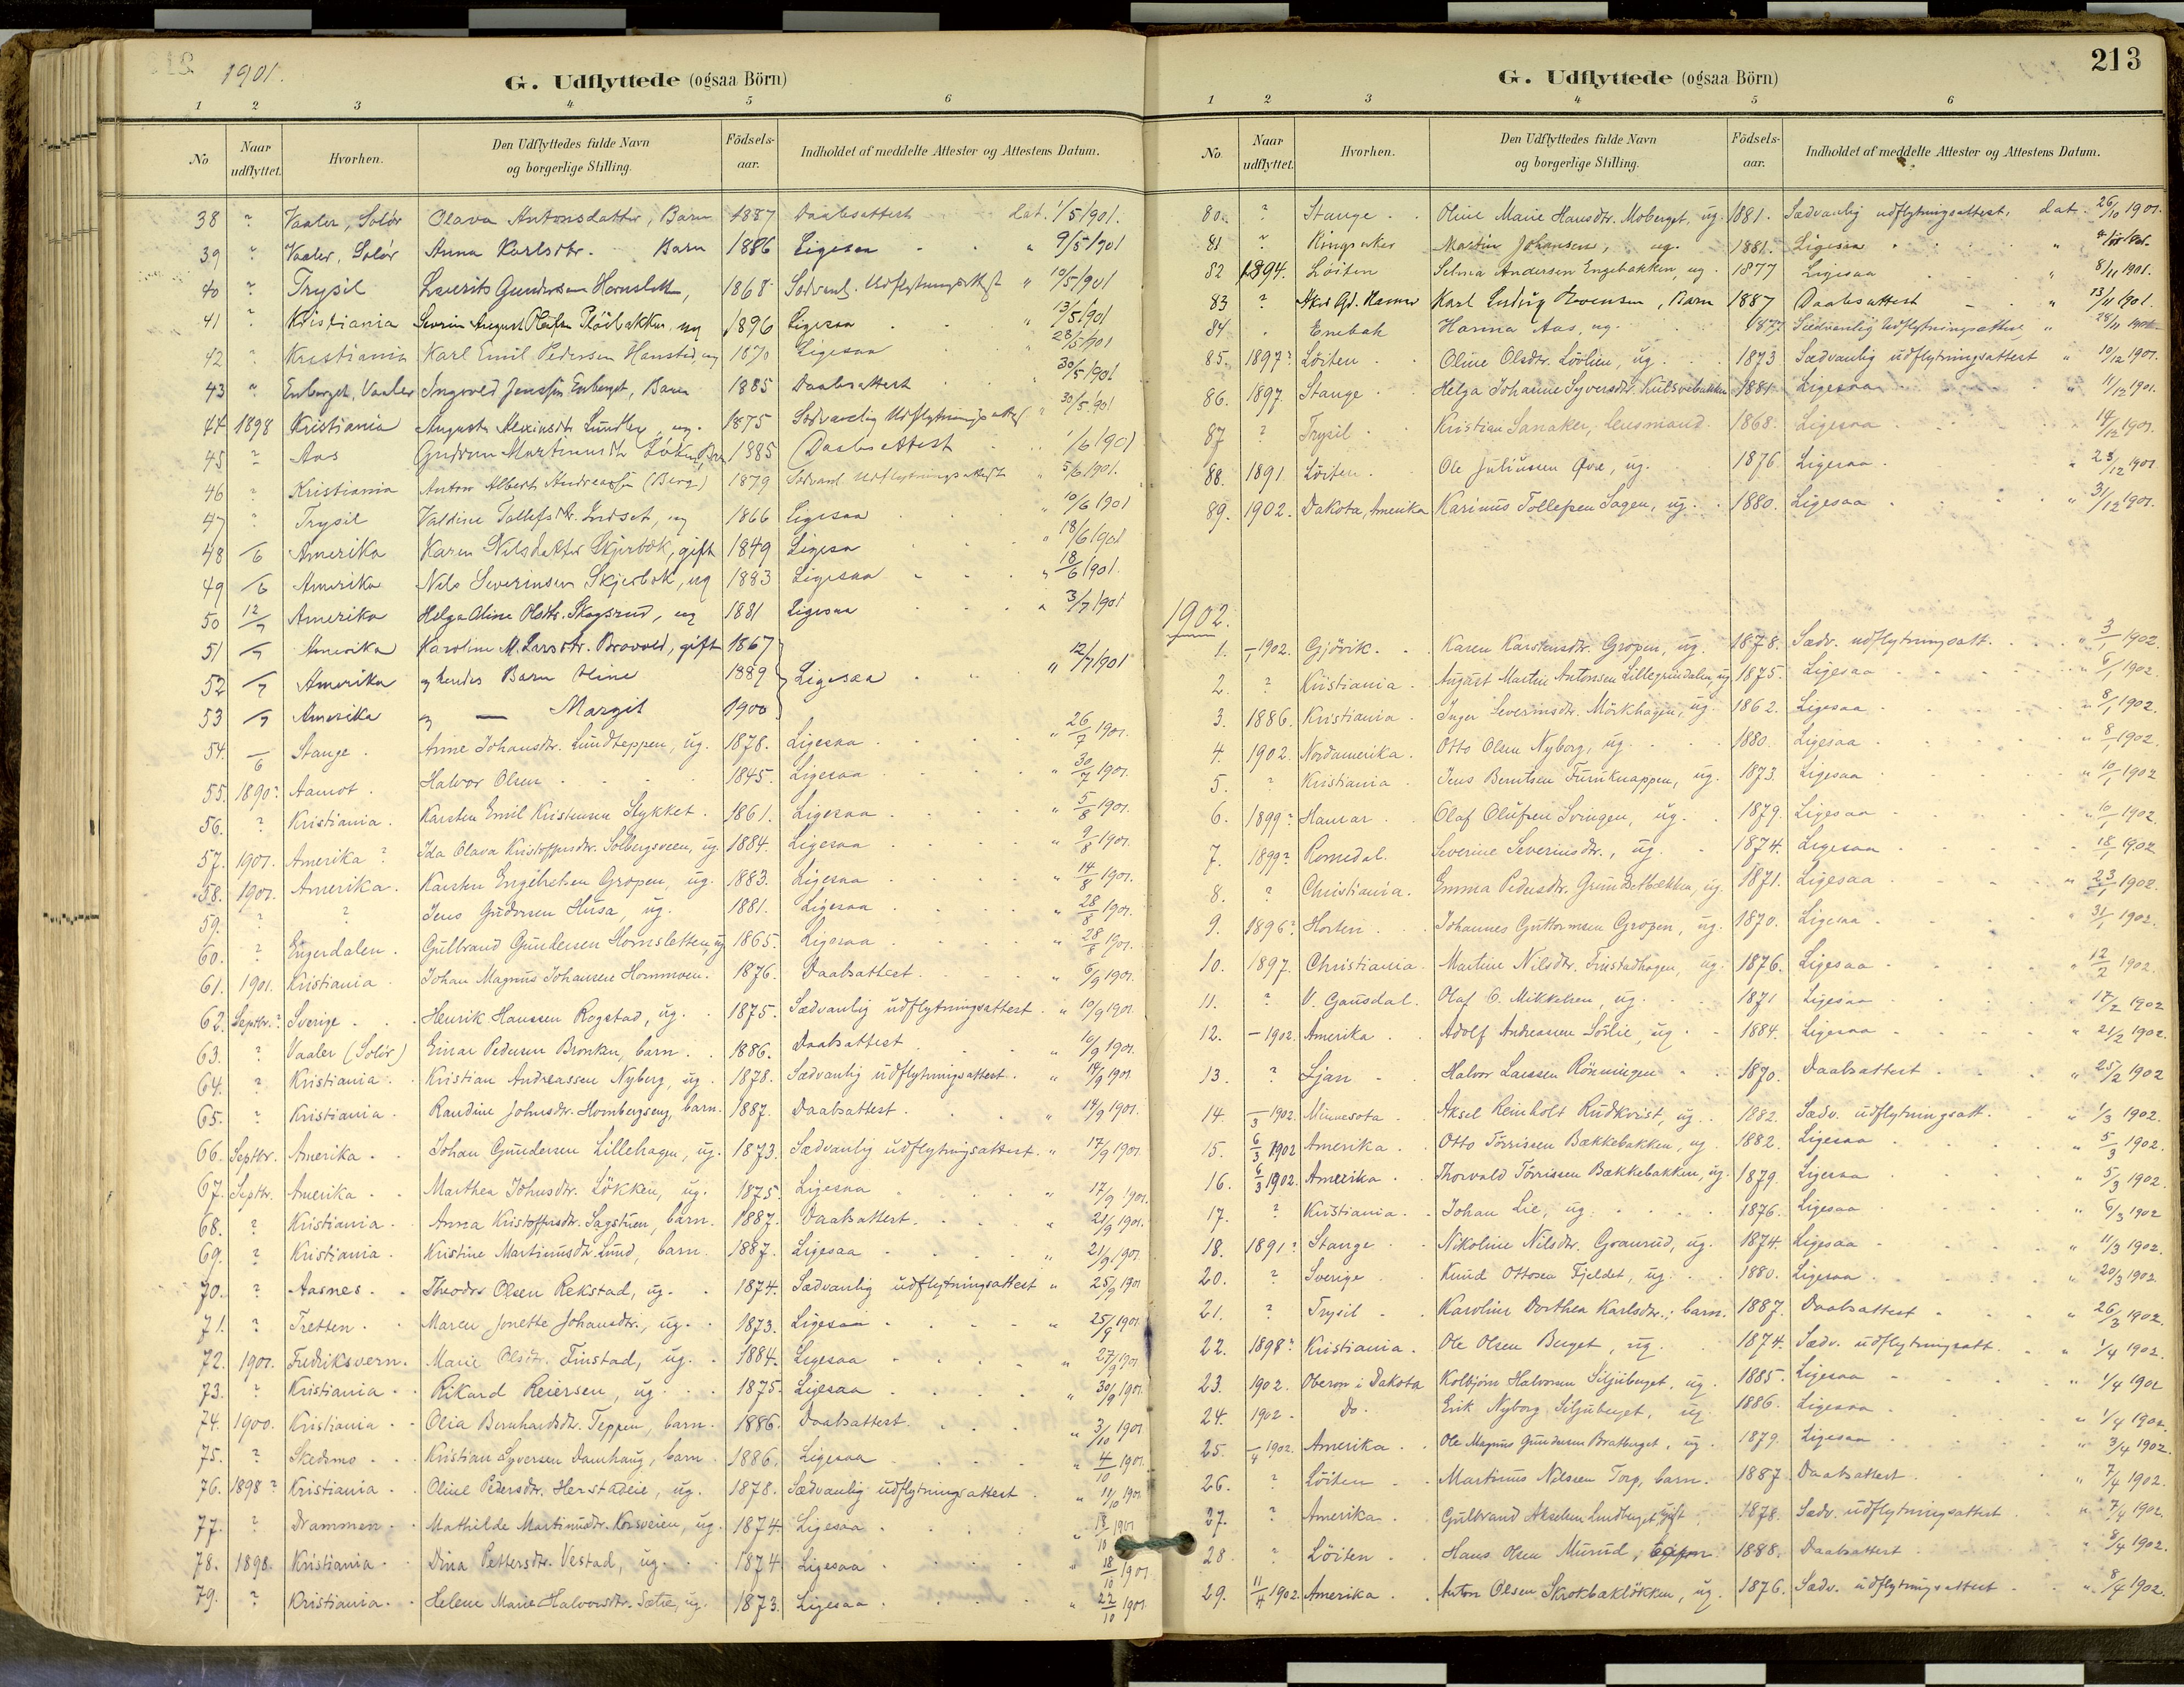 1901.
G. Udflyttede (ogsaa Börn)
1 2 3 4 5 6
No Naar udflyttet. Hvorhen. Den Udflyttedes fulde Navn og borgerlige Stilling. Födselsaar. Indholdet af meddelte Attester og Attestens Datum.
38 ? Vaaler, Solør Olava Antonsdatter, Barn 1887 Daabsattest dat. 1/5 1901.
39 ? Vaaler, Solør Anna Karlsdtr. Barn 1886 Ligesaa " 9/5 1901
40 ? Trysil Laurits Gundersen 1868 Sædvanl. Udflytningsattest " 10/5 1901
41 ? Kristiania Severin August Olafsen ug 1896 Ligesaa " 13/5 1901
42 ? Kristiania Karl Emil Pedersen Hansted, ug 1870 Ligesaa " 28/5 1901
43 " Enberget, Vaaler Ingvold Jenssen Enberget, Barn 1885 Daabsattest 30/5 1901
44 1898 Kristiania Augusta ug. 1875 Sædvanlig Udflytningsattest " 30/5 1901
45 ? Aas Gudrun Martinusdtr. 1885 Daabsattest 1/6 1901
46 ? Kristiania Anton Albert Andreassen (Berg) 1879 Sædvanl Udflytningsattest " 5/6 1901.
47 " Trysil Valdine Tollefsdtr. ug 1866 Ligesaa " 10/6 1901
48 /6 Amerika Karen Nilsdatter Skjerbæk, gift 1849 Ligesaa " 18/6 1901
49 /6 Amerika Nils Severinsen Skjerbæk, ug 1883 Ligesaa " 18/6 1901.
50 12/7 Amerika Helga Oline Olsdtr. Skogsrud, ug 1881 Ligesaa " 3/7 1901
51 /7 Amerika Karoline M. Larsdtr. Brovold, gift 1867
52 /7 Amerika og hendes Barn Oline 1889 Ligesaa " 12/7 1901
53 /7 Amerika og — Margit 1900
54. /6 Stange. Anne Johansdtr. Lundteppen, ug. 1878. Ligesaa " 26/7 1901.
55. 1890? Aamot. Halvor Olsen 1845. Ligesaa " 30/7 1901.
56. ? Kristiania. Karsten Emil Kristensen Stykket. 1861. Ligesaa " 5/8 1901.
57. 1901. Amerika? Ida Olava Kristoffersdtr. Solbergsveen, ug. 1884. Ligesaa " 9/8 1901.
58. 1901. Amerika. Karsten Engebretsen Gropen, ug. 1883. Ligesaa " 14/8 1901.
59. ? ? Jens Gudersen Husa, ug. 1881. Ligesaa " 28/8 1901.
60. ? Engerdalen. Gulbrand Gundersen Hornsletten, ug 1865. Ligesaa " 28/8 1901.
61. 1901. Kristiania. Johan Magnus Johansen Hommoen. 1876. Daabsattest " 6/9 1901.
62. Septbr.? Sverige. Henrik Hanssen Rogstad, ug. 1875. Sædvanlig udflytningsattest. " 10/9 1901.
63. ? Vaaler (Solør) Einar Pedersen Bronken, barn. 1886. Daabsattest " 10/9 1901.
64. ? Kristiania. Kristian Andreassen Nyberg, ug. 1878. Sædvanlig udflytningsattest. " 14/9 1901
65. ? Kristiania. Randine Johnsdtr. Hombergseng, barn. 1887. Daabsattest. " 14/9 1901.
66. Septbr. Amerika. Johan Gundersen Lillehagen, ug. 1873. Sædvanlig udflytningsattest. " 17/9 1901.
67. Septbr. Amerika. Marthea Johnsdtr. Løkken, ug. 1875. Ligesaa " 17/9 1901.
68. ? Kristiania. Anna Kristoffersdtr. Sagstuen, barn. 1887. Daabsattest. " 21/9 1901.
69. ? Kristiania. Kristine Martinusdtr. Lund, barn. 1887. Ligesaa " 21/9 1901.
70. ? Aasnes. Theodor Olsen Rekstad, ug. 1874. Sædvanlig udflytningsattest " 25/9 1901
71. ? Tretten. Maren Jonette Johansdtr., ug. 1873. Ligesaa " 25/9 1901
72. 1901. Fredriksvern. Marie Olsdtr. Finstad, ug. 1884. Ligesaa " 27/9 1901
73. ? Kristiania. Rikard Reiersen, ug. 1875. Ligesaa " 30/9 1901.
74. 1900. Kristiania. Olia Bernhardsdtr. Teppen, barn. 1886. Daabsattest. " 3/10 1901
75. ? Skedsmo. Kristian Syversen Damhaug, barn. 1886. Ligesaa " 4/10 1901.
76. 1898? Kristiania. Oline Pedersdtr. Herstadeie, ug. 1878. Sædvanlig udflytningsattest. " 11/10 1901
77. ? Drammen. Mathilde Martinusdtr. Korsveien, ug. 1874. Ligesaa " 18/10 1901
78. 1898. Kristiania. Dina Pettersdtr. Vestad, ug. 1874. Ligesaa " 18/10 1901.
79. ? Kristiania. Helene Marie Halvorsdtr. Sætre, ug. 1873. Ligesaa " 22/10 1901.
213
G. Udflyttede (ogsaa Börn)
1 2 3 4 5 6
No Naar udflyttet. Hvorhen. Den Udflyttedes fulde Navn og borgerlige Stilling. Födselsaar. Indholdet af meddelte Attester og Attestens Datum.
80. ? Stange. Oline Marie Hansdtr. Moberget, ug. 1881. Sædvanlig udflytningsattest. dat. 26/10 1901.
81 ? Ringsaker Martin Johansen, ug. 1881. Ligesaa "
82 1894. Løiten Selma Andersen Engebakken, ug. 1877 Ligesaa " 8/11 1901.
83 ? Karl Ludvig , Barn 1887 Daabsattest " 13/11 1901.
84 Enebak Hanna Aas, ug. 1877. Sædvanlig Udflytningsattest " 28/11
85. 1897? Løiten. Oline Olsdtr. Løvlien, ug. 1873 Sædvanlig udflytningsattest " 10/12 1901.
86. 1897. Stange. Helga Johanne Syversdtr. Kulsvebakken 1881. Ligesaa " 11/12 1901.
87 ? Trysil. Kristian Sanaker, lensmand. 1868. Ligesaa 14/12 1901.
88. 1891. Løiten. Ole Juliussen Øvre, ug. 1876. Ligesaa. " 23/12 1901
89. 1902. Dakota, Amerika Karinus Tollefsen Sagen, ug. 1880. Ligesaa " 31/12 1901.
1902.
1. /1 1902. Gjøvik. Karen Karstensdtr. Gropen, ug. 1878. Sædv. udflytningsatt. " 3/1 1902.
2. ? Kristiania. August Martin Antonsen Lillegrindalen, ug 1875. Ligesaa " 6/1 1902.
3. 1886. Kristiania. Inger Severinsdtr. Mørkhagen, ug. 1862. Ligesaa " 8/1 1902.
4. 1902. Nordamerika. Otto Olsen Nyborg, ug. 1880. Ligesaa " 8/1 1902.
5. ? Kristiania Jens Berntsen Furuknappen, ug. 1873. Ligesaa " 10/1 1902
6. 1899? Hamar. Olaf Olufsen Svingen, ug. 1879. Ligesaa " 10/1 1902.
7. 1899? Romedal. Severine Severinsdtr., ug. 1874. Ligesaa 18/1 1902
8. ? Christiania. Emma Pedersdtr. Grundsetbakken, ug. 1871. Ligesaa " 23/1 1902.
9. 1896? Horten. Johannes Guttormsen Gropen, ug. 1870. Ligesaa " 31/1 1902.
10. 1897. Christiania. Martine Nilsdtr. Finstadhagen, ug. 1876. Ligesaa " 12/2 1902.
11. ? V. Gausdal. Olaf C. Mikkelsen, ug. 1871 Ligesaa " 17/2 1902
12. – 1902. Amerika. Adolf Andreassen Sørlie, ug. 1884. Ligesaa " 21/2 1902.
13. ? Ljan. Halvor Larssen Rønningen 1870. Daabsattest " 25/2 1902
14. /3 1902. Minnesota. Aksel Reinholt Rudkvist, ug. 1882. Sædv. udflytningsatt. " 1/3 1902.
15. 6/3 1902 Amerika. Otto Tørrissen Bækkebakken, ug 1882. Ligesaa " 5/3 1902.
16. 6/3 1902. Amerika. Thorvald Tørrissen Bækkebakken, ug. 1879. Ligesaa " 5/3 1902.
17. ? Kristiania. Johan Lie, ug. 1876. Ligesaa " 6/3 1902
18. 1891? Stange. Nikoline Nilsdtr. Granrud, ug. 1874. Ligesaa " 11/3 1902.
20. ? Sverige. Knud Ottosen Fjeldet, ug. 1880. Ligesaa " 20/3 1902.
21. ? Trysil. Karoline Dorthea Karlsdtr.; barn. 1887. Daabsattest " 26/3 1902.
22. 1898? Kristiania. Ole Olsen Berget, ug. 1874. Sædv. udflytningsatt. " 1/4 1902.
23. 1902. Oberon i Dakota Kolbjørn Halvorsen Siljuberget, ug. 1885. Ligesaa 1/4 1902
24. 1902. Do. Erik Nyborg Siljuberget, ug. 1886. Ligesaa " 1/4 1902.
25. /4 1902. Amerika. Ole Magnus Gundersen Bratberget, ug. 1879. Ligesaa " 3/4 1902.
26. ? Løiten. Martinus Nilssen Torp, barn. 1887 Daabsattest " 7/4 1902.
27. ? Amerika. Gulbrand Akselsen Lundberget, gift. 1878. Sædv. udflytningsattest " 7/4 1902.
28. ? Løiten. Hans Olsen Murud, 1888. Daabsattest " 8/4 1902.
29. 11/4 1902. Amerika. Anton Olsen Skrokbækløkken, ug. 1876. Sædv. udflytningsattest " 8/4 1902.